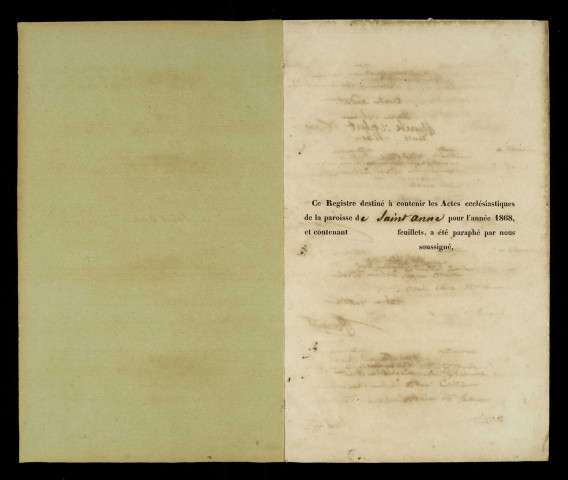 Ce Registre destiné à contenir les Actes ecclésiastiques
de la paroisse de Saint anne pour l'année 1868,
et contenant feuillets, a été paraphé par nous
soussigné.